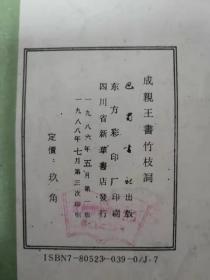 成親王書竹枝詞
巴蜀書社出版
东方彩印厂印刷
四川省新華書店發行
一九八六年五月第一版
一九八八年七月第三次印刷
定價：玖角
ISBN7-80523-039-0/J·7